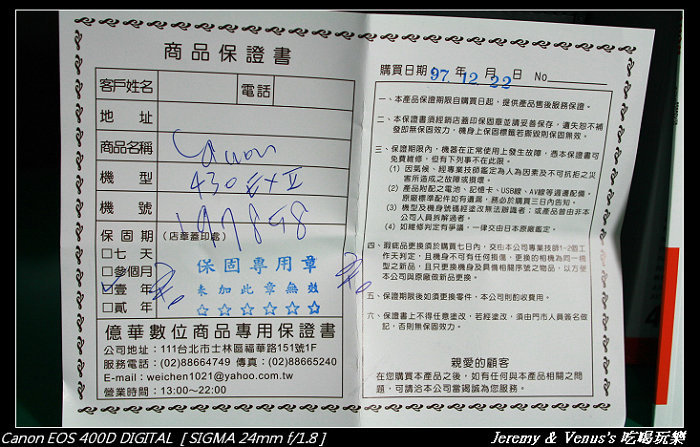 商品保證書
客戶姓名
電話
地址
商品名稱 Canon
機型 430EX II
機號
保固期 (店章蓋印處)
□七天
□參個月
□壹年
□貳年
保固專用章
未加此章無效
☆☆☆☆☆☆
億華數位商品專用保證書
公司地址：111台北市士林區福華路151號1F
服務電話：(02)88664749 傳真：(02)88665240
E-mail：weichen1021@yahoo.com.tw
營業時間：13:00～22:00
購買日期 97 年 12 月 22 日 No
一、本產品保證期限自購買日起，提供產品售後服務保證。
二、本保證書須經銷店蓋印保固章並請妥善保存，遺失恕不補
發即無保固效力，機身上保固標籤若撕毀則保固無效。
三、保證期限內，機器在正常使用上發生故障，憑本保證書可
免費維修，但有下列事不在此限。
(1) 因氣候、經專業技師鑑定為人為因素及不可抗拒之災
害所造成之故障或損壞。
(2) 產品附配之電池、記憶卡、USB線、AV線等週邊配備，
原廠標準配件如有遺漏，務必於購買三日內告知。
(3) 機型及機身號碼經塗改無法辦識者；或產品曾由非本
公司人員拆解過者。
(4) 如維修判定有爭議，一律交由日本原廠鑑定。
四、瑕疵品更換須於購買七日內，交由本公司專業技師1-2個工
作天判定，且機身不可有任何損傷，更換的相機為同一機
型之新品，且只更換機身及具備相關序號之物品，以方便
本公司與原廠做新品更換。
五、保證期限後如須更換零件，本公司則酌收費用。
六、保證書上不得任意塗改，若經塗改，須由門市人員簽名做
記，否則無保固效力。
親愛的顧客
在您購買本產品之後，如有任何與本產品相關之問
題，可請洽本公司當竭誠為您服務。
Canon EOS 400D DIGITAL [ SIGMA 24mm f/1.8 ]
Jeremy & Venus's 吃喝玩樂